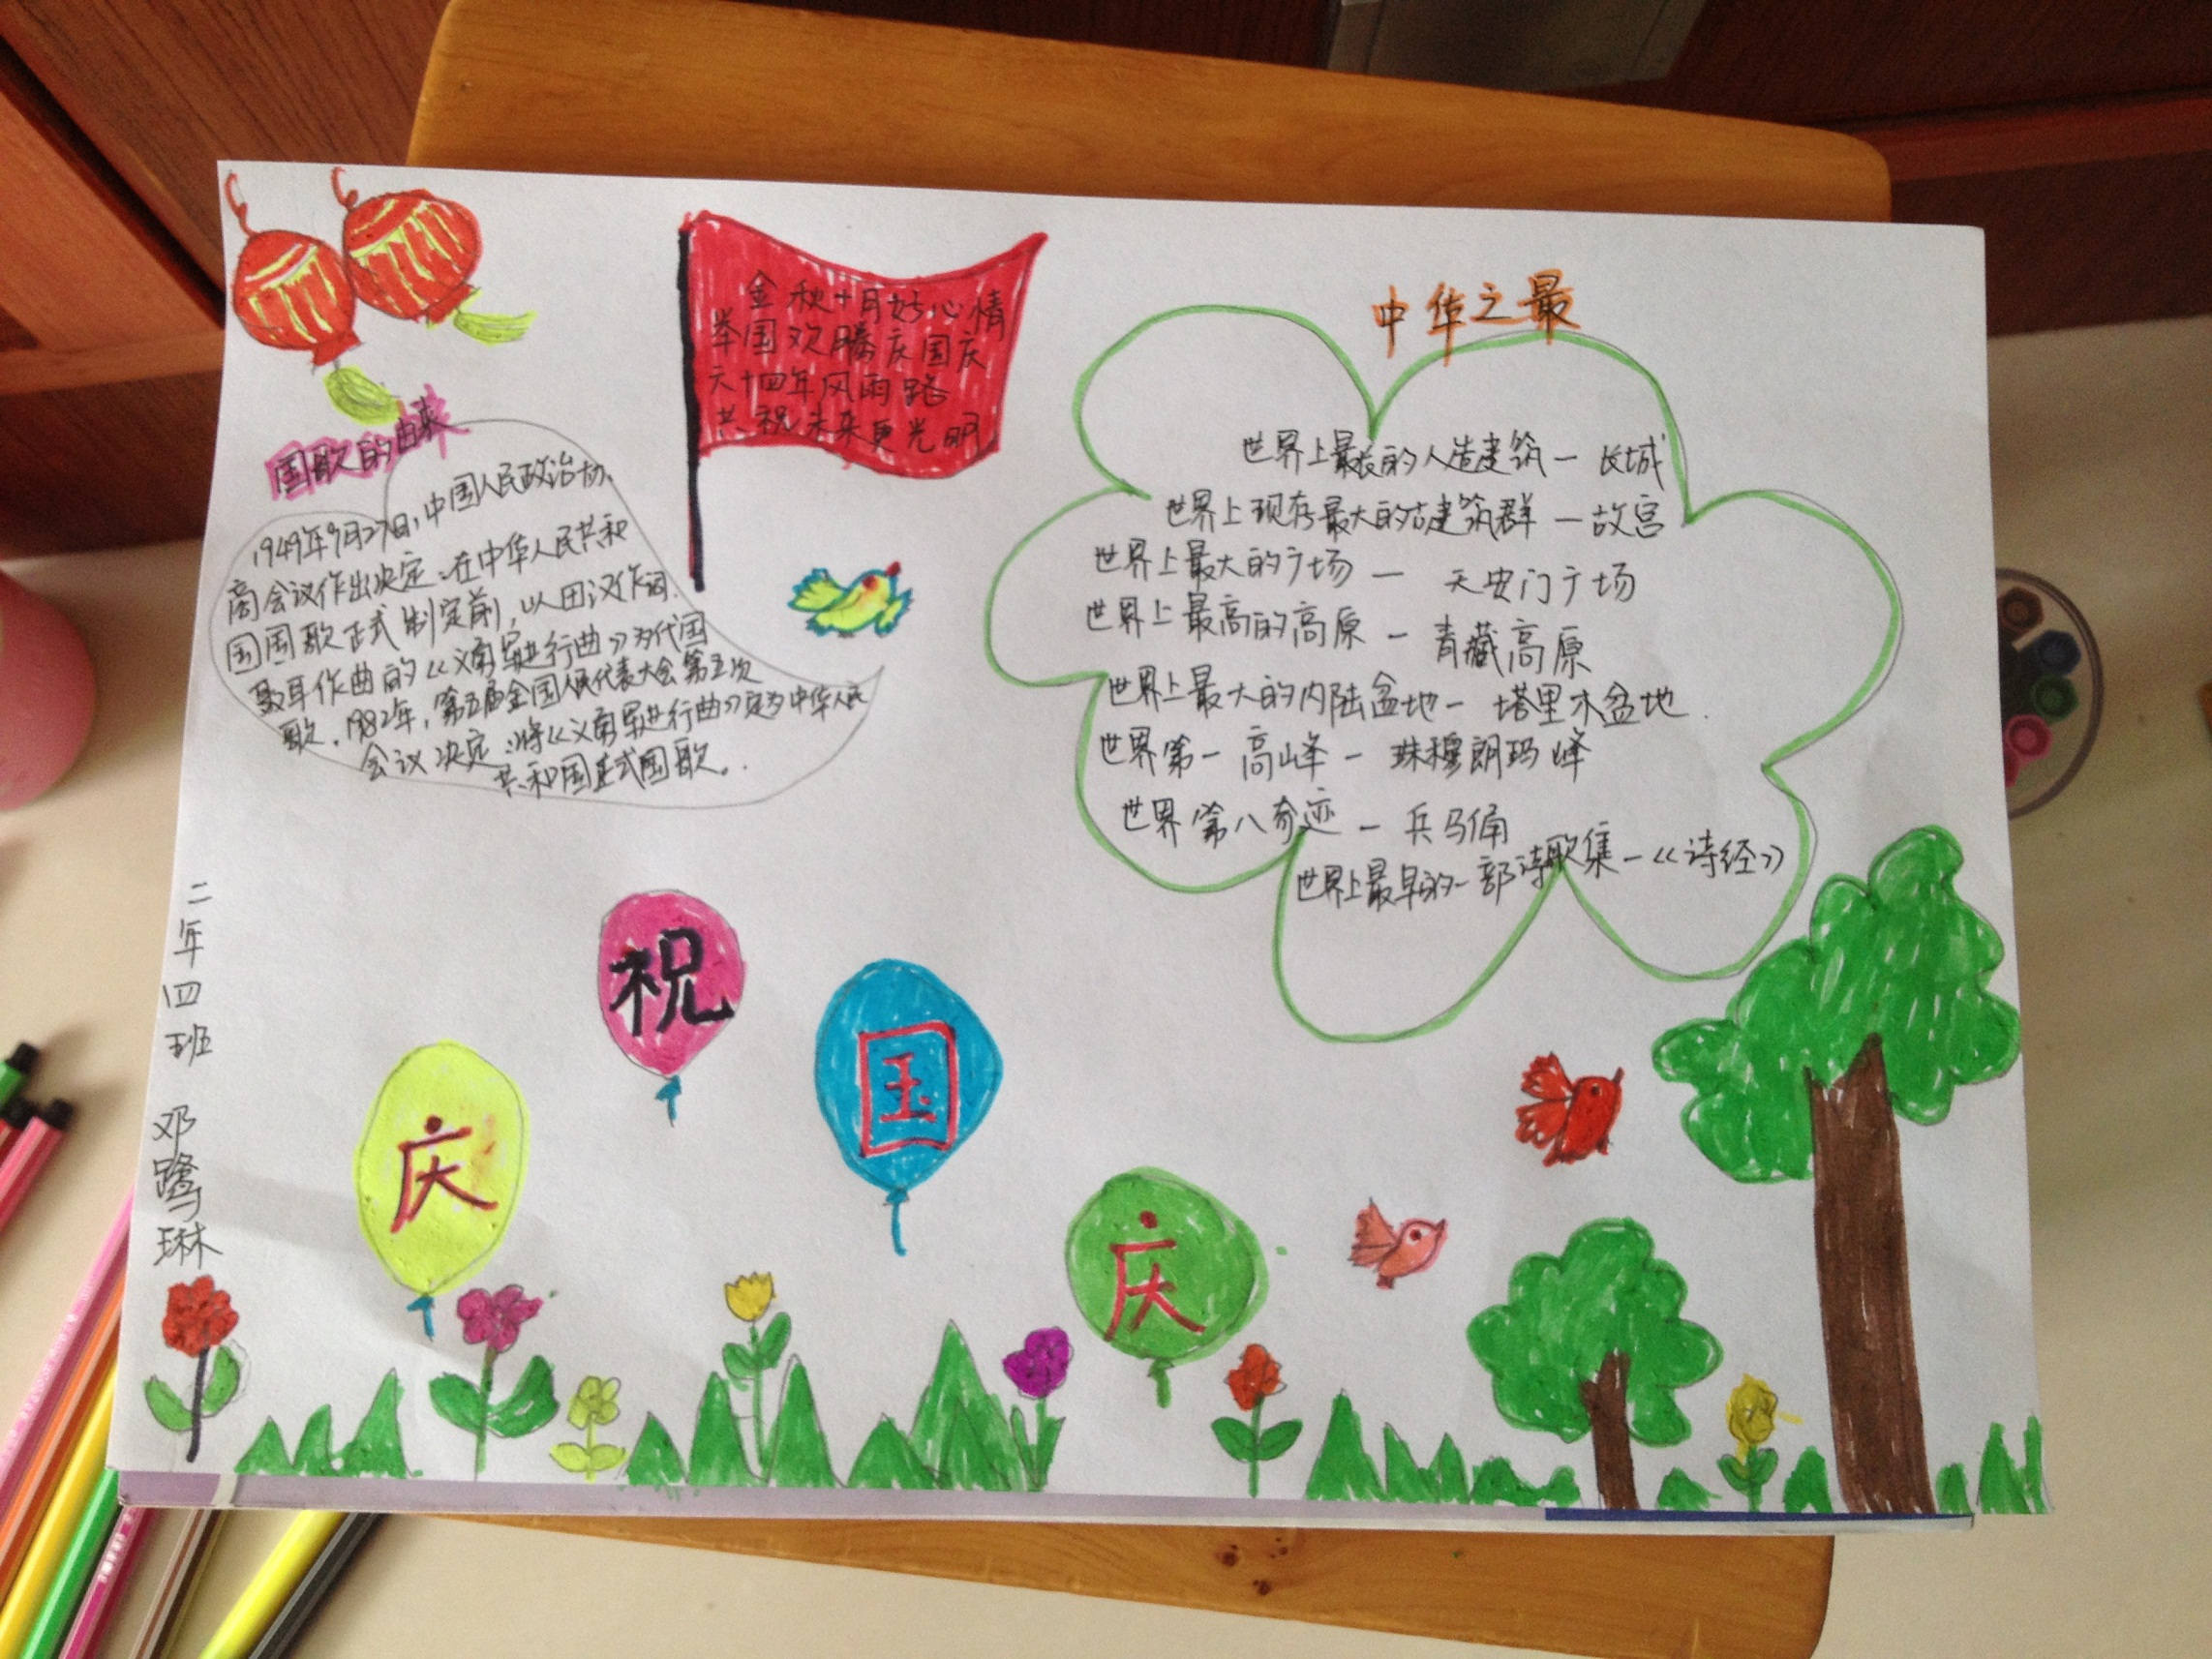 国歌的由来
1949年9月27日，中国人民政治协
商会议作出决定：在中华人民共和
国国歌正式制定前，以田汉作词.
聂耳作曲的《义勇军进行曲》为代国
歌。1982年，第五届全国人民代表大会第五次
会议决定：将《义勇军进行曲》定为中华人民
共和国正式国歌。
金秋十月好心情
举国欢腾庆国庆
六十四年风雨路
共祝未来更光明
中华之最
世界上最长的人造建筑—长城
世界上现存最大的古建筑群—故宫
世界上最大的广场—天安门广场
世界上最高的高原—青藏高原
世界上最大的内陆盆地—塔里木盆地.
世界第一高峰—珠穆朗玛峰
世界第八奇迹—兵马俑
世界上最早的一部诗歌集—《诗经》
庆
祝
国
庆
二年四班 邓鹭琳